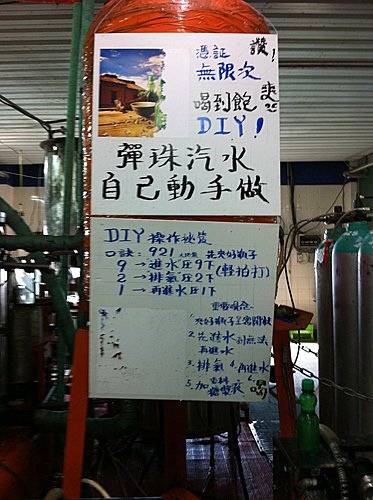 憑証
讚!
無限次
喝到飽
爽
DIY!
彈珠汽水
自己動手做
DIY 操作祕笈
口訣: 921 先夾好瓶子
9 → 進水压9下
(輕拍打)
2 → 排氣压2下
1 → 再進水压1下
1. 夾好瓶子
2. 先進水到無法
再進水
3. 排氣 4. 再進水
5. 加 糖漿
喝